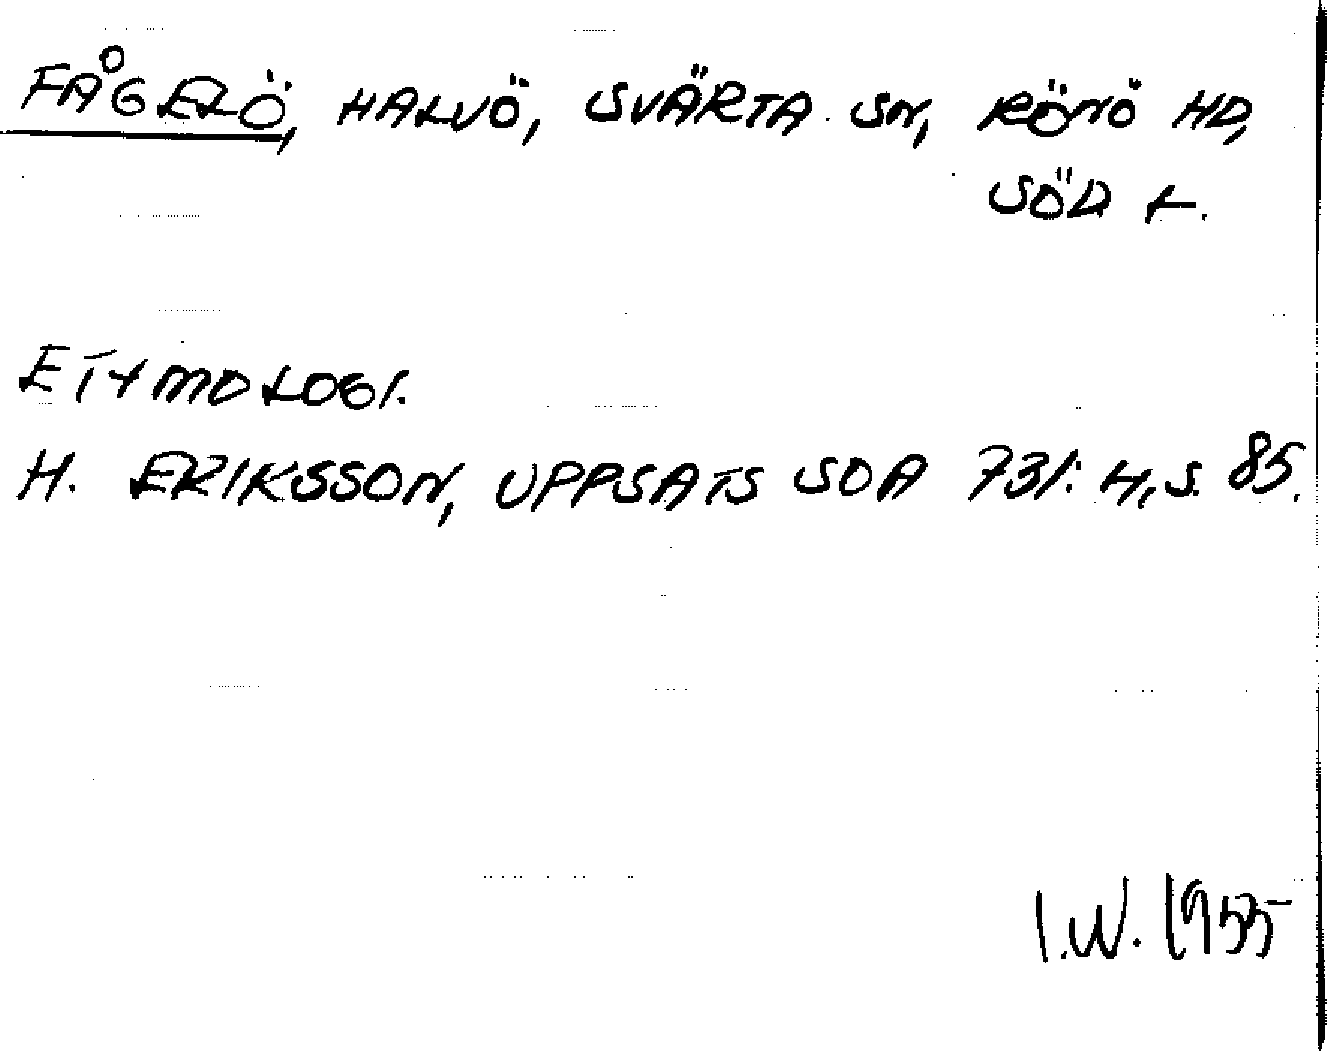 FÅGELÖ, HALVÖ, SVÄRTA SN, RÖNÖ HD,
SÖD L.
ETYMOLOGI.
H. ERIKSSON, UPPSATS SOA 731: H, S. 85.
I.W. 1955